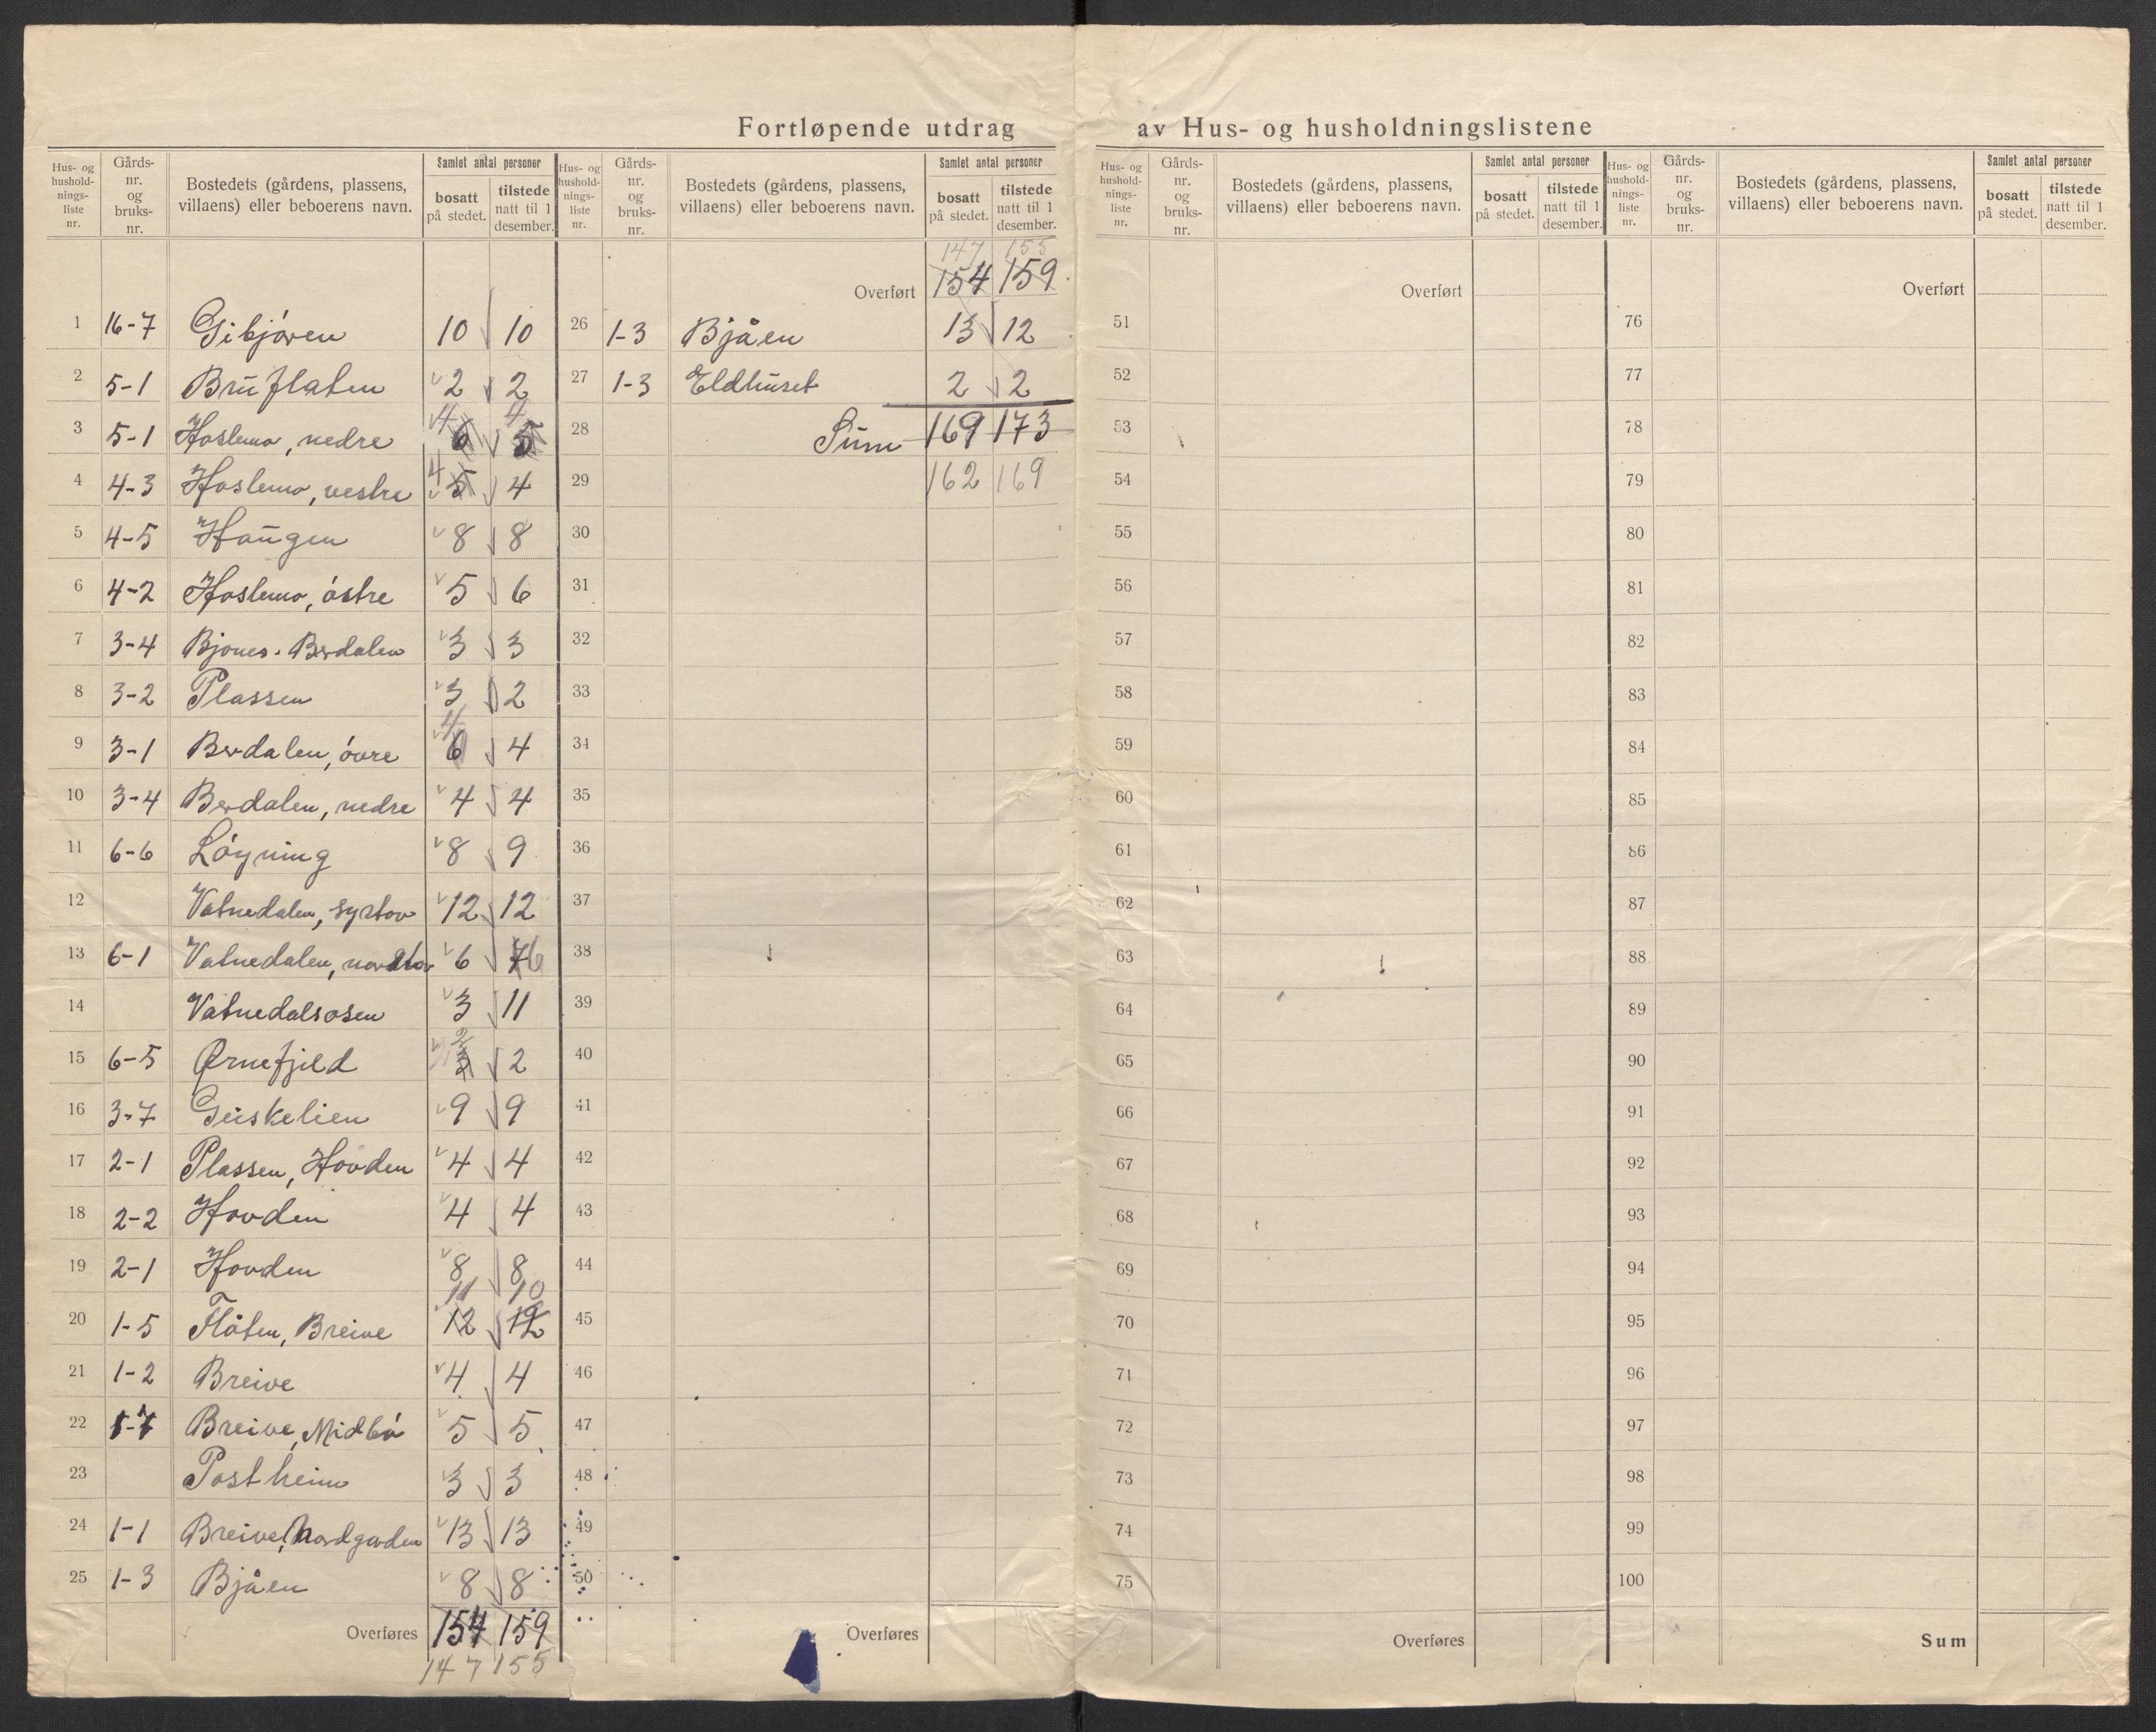 Fortløpende utdrag av Hus- og husholdningslistene
Hus- og hushold- nings- liste nr. | Gårds- nr. og bruks- nr. | Bostedets (gårdens, plassens, villaens) eller beboerens navn. | Samlet antal personer | bosatt på stedet. | tilstede natt til 1 desember.
1 16-7 Gibjóren 10 10
2 5-1 Bruflaten 2 2
3 5-1 Hoslemo, nedre 6 4 5 4
4 4-3 Hoslemo, vestre 5 4 4
5 4-5 Haugen 8 8
6 4-2 Hoslemo, óstre 5 6
7 3-4 Bjones-Berdalen 3 3
8 3-2 Plassen 3 2
9 3-1 Berdalen, óvre 6 4 4
10 3-4 Berdalen, nedre 4 4
11 6-6 Lóyning 8 9
12 Vatnedalen, syrtov 12 12
13 6-1 Vatnedalen, 6 7 6
14 Vatnedalsosen 3 11
15 6-5 Ørnefjeld 3 2 2
16 3-7 Geiskelien 9 9
17 2-1 Plassen, Hovden 4 4
18 2-2 Hovden 4 4
19 2-1 Hovden 8 8
20 1-5 Flåten, Breive 12 11 12 10
21 1-2 Breive 4 4
22 1-7 Breive, Midbó 5 5
23 Postheim 3 3
24 1-1 Breive, Nordgarden 13 13
25 1-3 Bjåen 8 8
Overføres 154 159
147 155
Hus- og hushold- nings- liste nr. | Gårds- nr. og bruks- nr. | Bostedets (gårdens, plassens, villaens) eller beboerens navn. | Samlet antal personer | bosatt på stedet. | tilstede natt til 1 desember.
147 155
Overført 154 159
26 1-3 Bjåen 13 12
27 1-3 Eldhuset 2 2
28 Sum 169 173
29 162 169
30
31
32
33
34
35
36
37
38
39
40
41
42
43
44
45
46
47
48
49
50
Overføres
Hus- og hushold- nings- liste nr. | Gårds- nr. og bruks- nr. | Bostedets (gårdens, plassens, villaens) eller beboerens navn. | Samlet antal personer | bosatt på stedet. | tilstede natt til 1 desember.
Overført
51
52
53
54
55
56
57
58
59
60
61
62
63
64
65
66
67
68
69
70
71
72
73
74
75
Overføres
Hus- og hushold- nings- liste nr. | Gårds- nr. og bruks- nr. | Bostedets (gårdens, plassens, villaens) eller beboerens navn. | Samlet antal personer | bosatt på stedet. | tilstede natt til 1 desember.
Overført
76
77
78
79
80
81
82
83
84
85
86
87
88
89
90
91
92
93
94
95
96
97
98
99
100
Sum